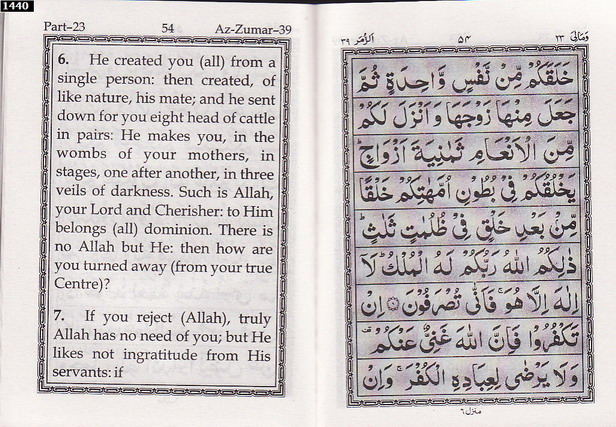 1440
Part-23 54 Az-Zumar-39
6. He created you (all) from a
single person: then created, of
like nature, his mate; and he sent
down for you eight head of cattle
in pairs: He makes you, in the
wombs of your mothers, in
stages, one after another, in three
veils of darkness. Such is Allah,
your Lord and Cherisher: to Him
belongs (all) dominion. There is
no Allah but He: then how are
you turned away (from your true
Centre)?
7. If you reject (Allah), truly
Allah has no need of you; but He
likes not ingratitude from His
servants: if
وَمَالِىَ ٢٣ ۵۴ اَلزُّمَر ٣٩
خَلَقَكُمْ مِّنْ نَّفْسٍ وَّاحِدَةٍ ثُمَّ
جَعَلَ مِنْهَا زَوْجَهَا وَاَنْزَلَ لَكُمْ
مِّنَ الْاَنْعَامِ ثَمٰنِيَةَ اَزْوَاجٍ ؕ
يَخْلُقُكُمْ فِىْ بُطُوْنِ اُمَّهٰتِكُمْ خَلْقًا
مِّنْۢ بَعْدِ خَلْقٍ فِىْ ظُلُمٰتٍ ثَلٰثٍ ؕ
ذٰلِكُمُ اللّٰهُ رَبُّكُمْ لَهُ الْمُلْكُ ؕ لَاۤ
اِلٰهَ اِلَّا هُوَ ۚ فَاَنّٰى تُصْرَفُوْنَ ۝ اِنْ
تَكْفُرُوْا فَاِنَّ اللّٰهَ غَنِىٌّ عَنْكُمْ
وَلَا يَرْضٰى لِعِبَادِهِ الْكُفْرَ ۚ وَاِنْ
منزل ٦